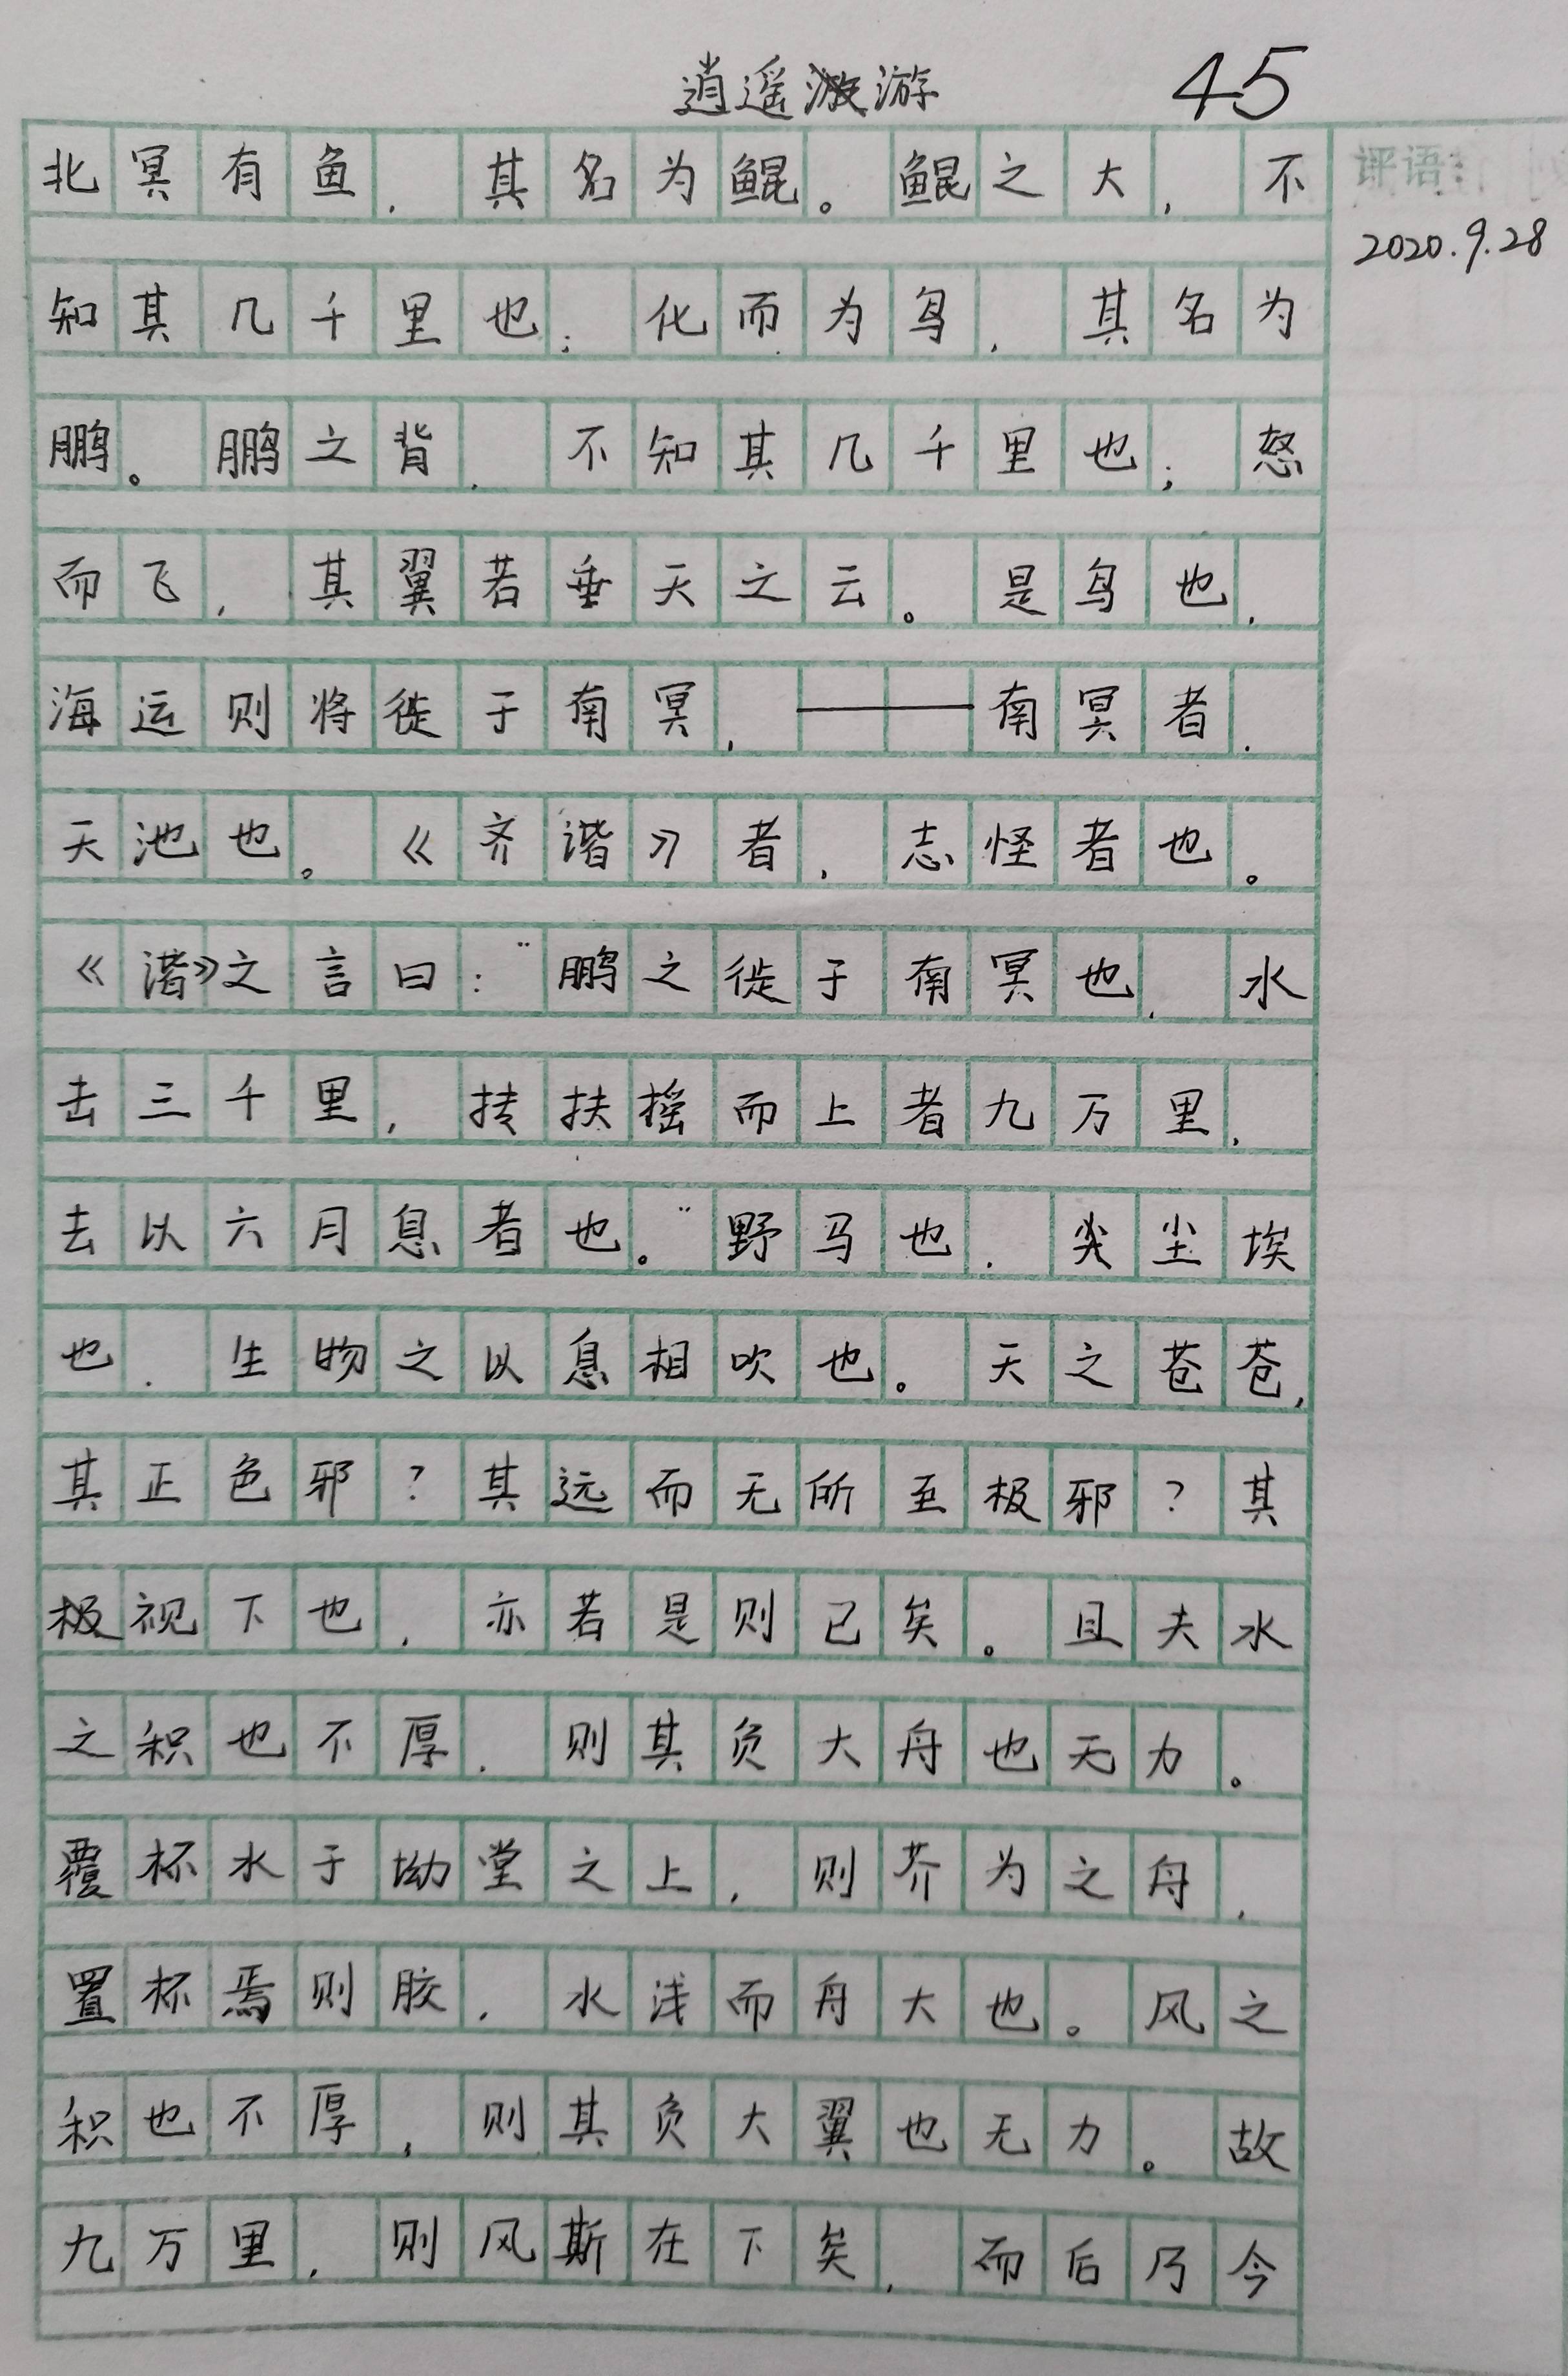 逍遥游 45
评语:
2020.9.28
北冥有鱼,其名为鲲。鲲之大,不
知其几千里也;化而为鸟,其名为
鹏。鹏之背,不知其几千里也;怒
而飞,其翼若垂天之云。是鸟也,
海运则将徙于南冥,——南冥者,
天池也。《齐谐》者,志怪者也。
《谐》之言曰:“鹏之徙于南冥也,水
击三千里,抟扶摇而上者九万里,
去以六月息者也。”野马也,尘埃
也,生物之以息相吹也。天之苍苍,
其正色邪?其远而无所至极邪?其
视下也,亦若是则已矣。且夫水
之积也不厚,则其负大舟也无力。
覆杯水于坳堂之上,则芥为之舟,
置杯焉则胶,水浅而舟大也。风之
积也不厚,则其负大翼也无力。故
九万里,则风斯在下矣,而后乃今